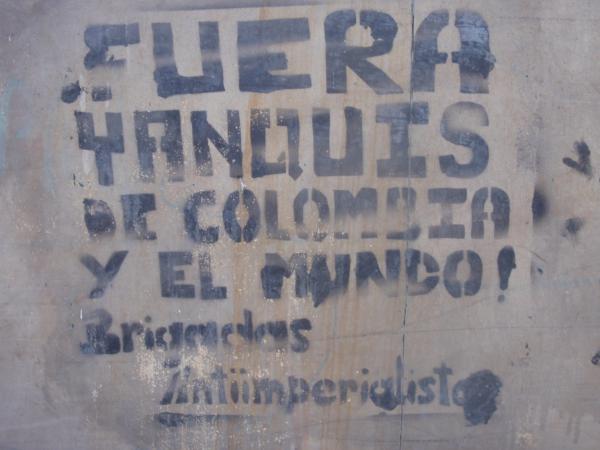 FUERA
YANQUIS
DE COLOMBIA
Y EL MUNDO!
Brigadas
Antiimperialistas